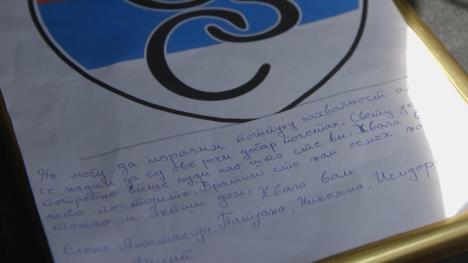 С
С
Не могу да изразим потпуну захвалност а
се надам да су ове речи добар почетак. Свету је
потребно више људи као што сте ви. Хвала в
што постојите. Вратили сте нам осмех на
топао и лепши дом. Хвала вам
Елена, Анастасија, Татјана, Николина, Исидор
Филип